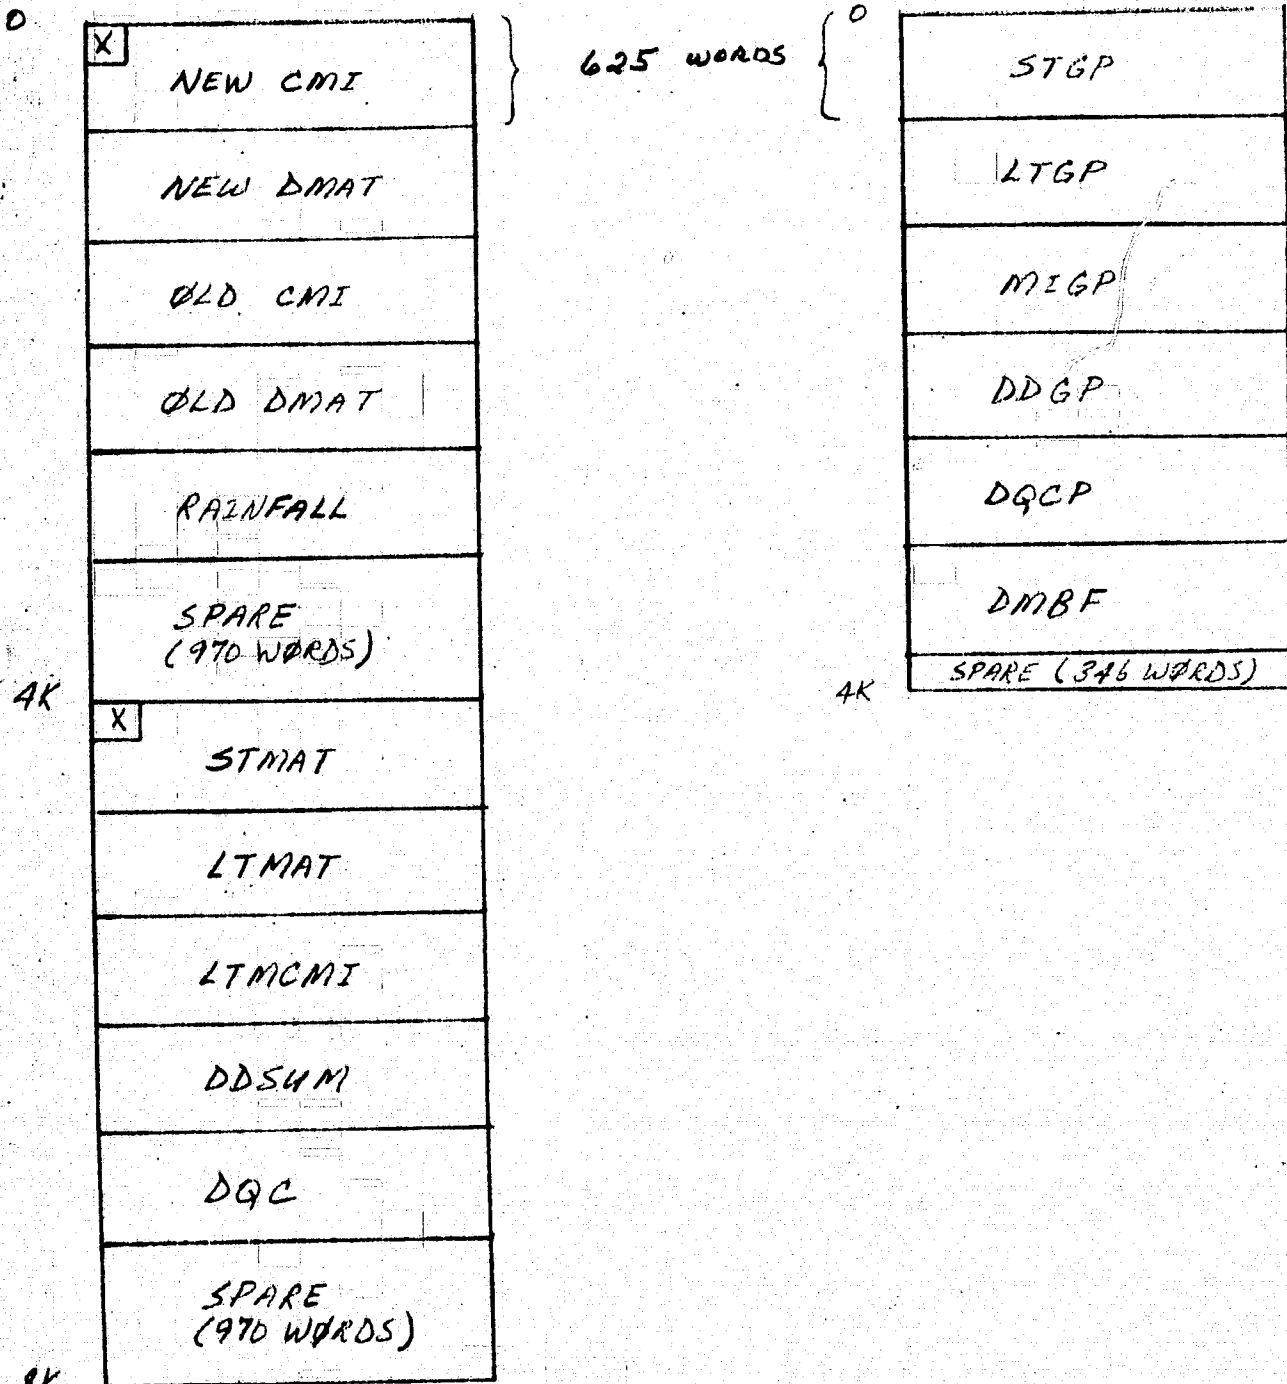 0
X
NEW CMI
NEW DMAT
ØLD CMI
ØLD DMAT
RAINFALL
SPARE
(970 WØRDS)
4K
X
STMAT
LTMAT
LTMCMI
DDSUM
DQC
SPARE
(970 WØRDS)
8K
625 WORDS
0
STGP
LTGP
MIGP
DDGP
DQCP
DMBF
SPARE (346 WØRDS)
4K